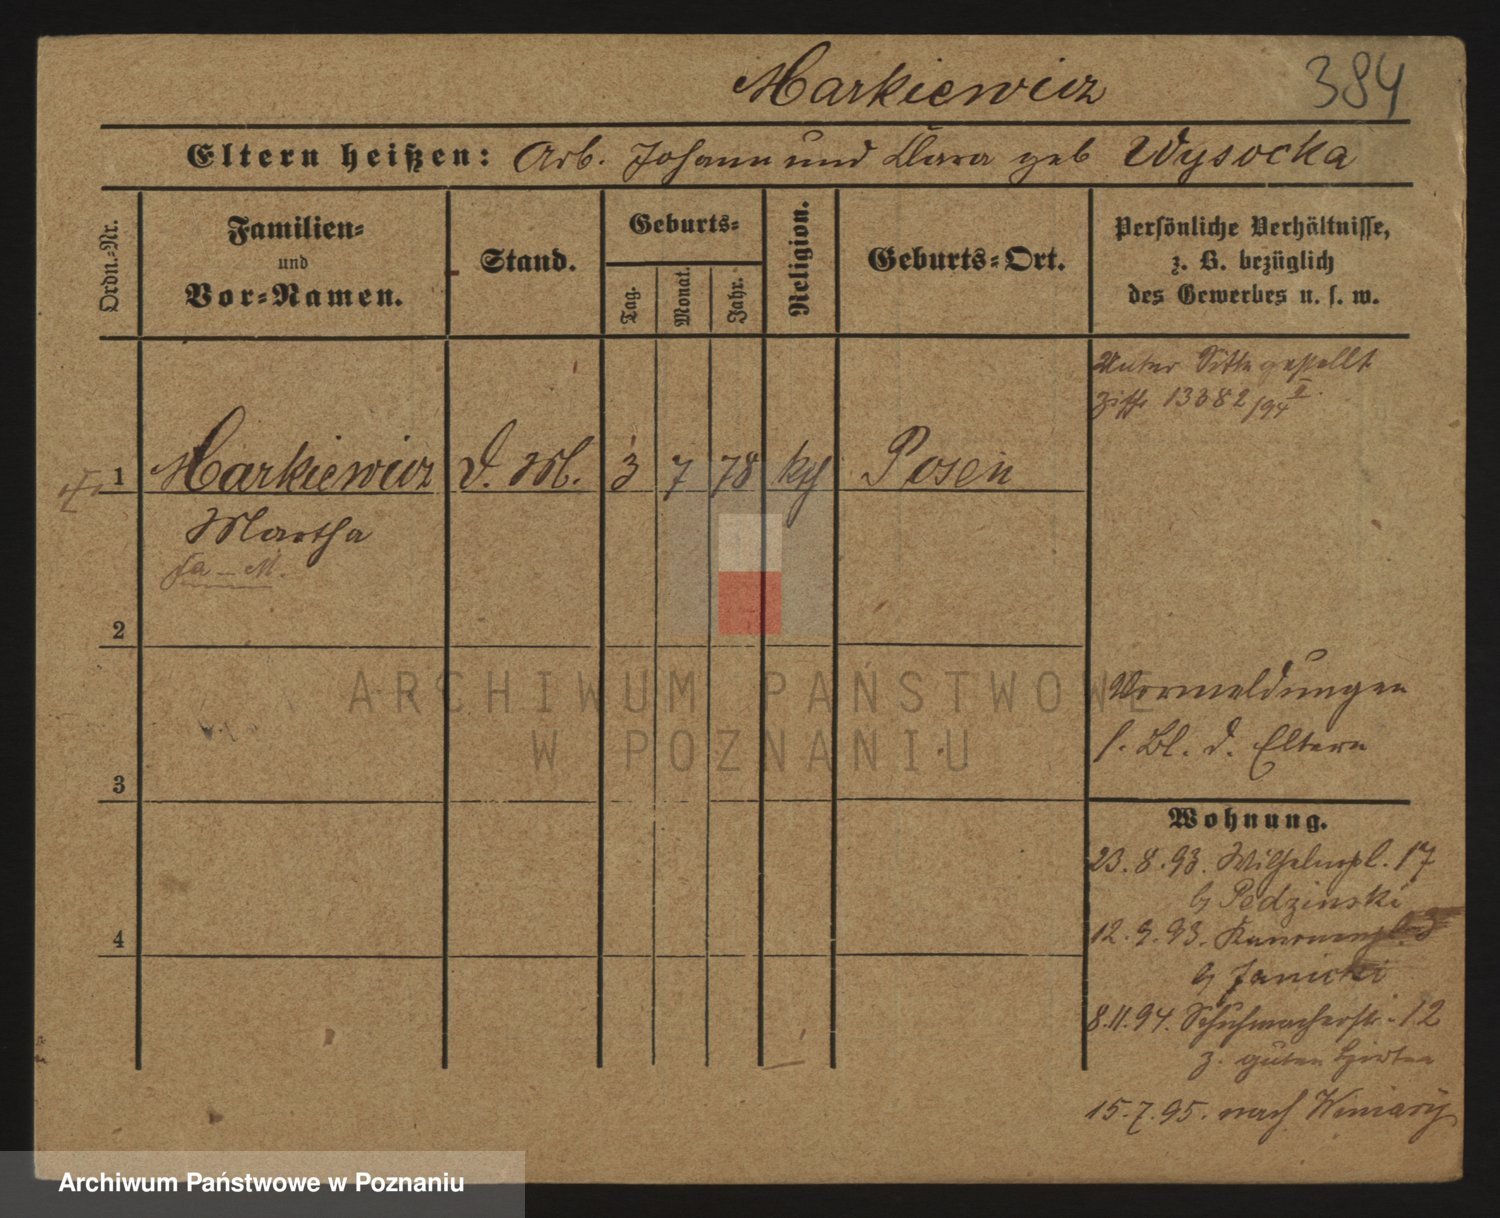 Markiewicz
384
Eltern heißen: Arb. Johann und Clara geb Wysocka
Ordn.-Nr.
Familien-
und
Vor-Namen.
Stand.
Geburts-
Tag.
Monat.
Jahr.
Religion.
Geburts-Ort.
Persönliche Verhältnisse,
z. B. bezüglich
des Gewerbes u. s. w.
Unter Sitte gestellt
13382/94 I
1 Markiewicz D. M. 3 7 78 kth Posen
Martha
2
ARCHIWUM PAŃSTWOWE
W POZNANIU
Vormeldungen
s. Bl. d. Eltern
3
Wohnung.
23.8.93. Wilhelmpl. 17
b Pedzinski
4
12.9.93. Kanonenpl. 3
b Janicki
8.11.94. Schuhmacherstr. 12
z. guten Hirten
15.7.95. nach Winiary
Archiwum Państwowe w Poznaniu